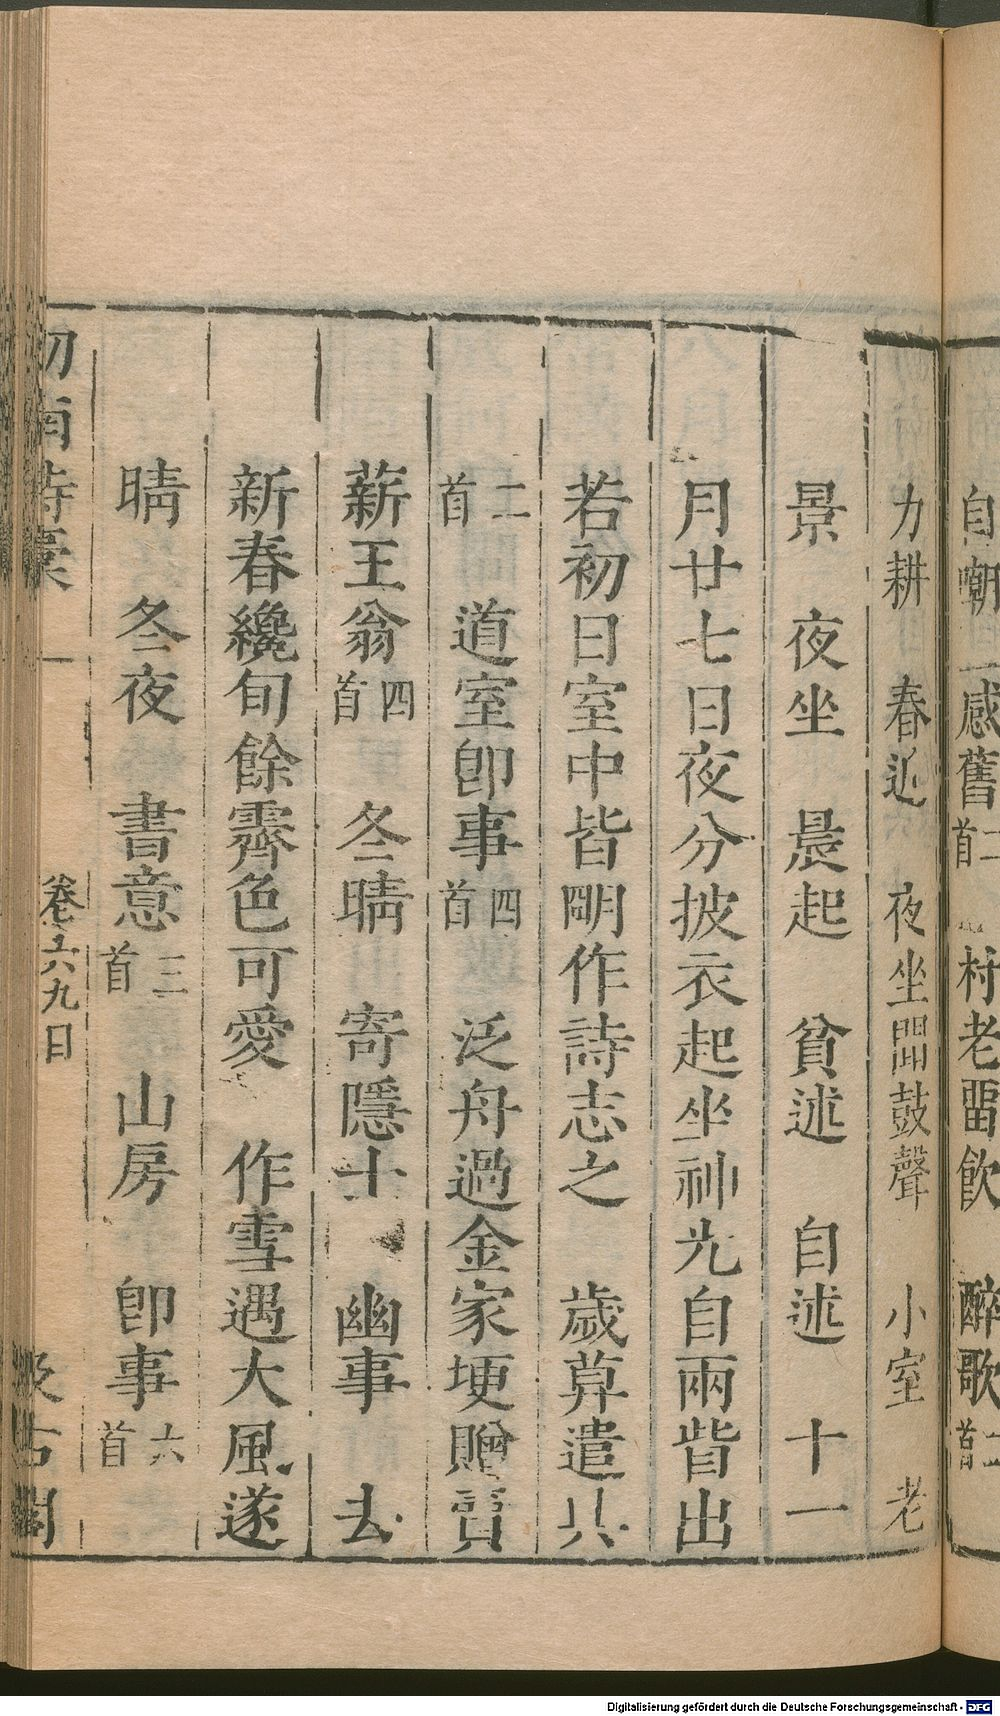 自嘲 感舊二首 村老留飲 醉歌二首
力耕 春近 夜坐聞鼓聲 小室 老
景 夜坐 晨起 貧述 自述 十一
月廿七日夜分披衣起坐神光自兩眥出
若初日室中皆明作詩志之 歲莫遣興
二首 道室卽事四首 泛舟過金家埂贈賣
薪王翁四首 冬晴 寄隱士 幽事 去
新春纔旬餘霽色可愛 作雪遇大風遂
晴 冬夜 書意三首 山房 卽事六首
劒南詩稾 卷六九目 汲古閣
Digitalisierung gefördert durch die Deutsche Forschungsgemeinschaft - DFG